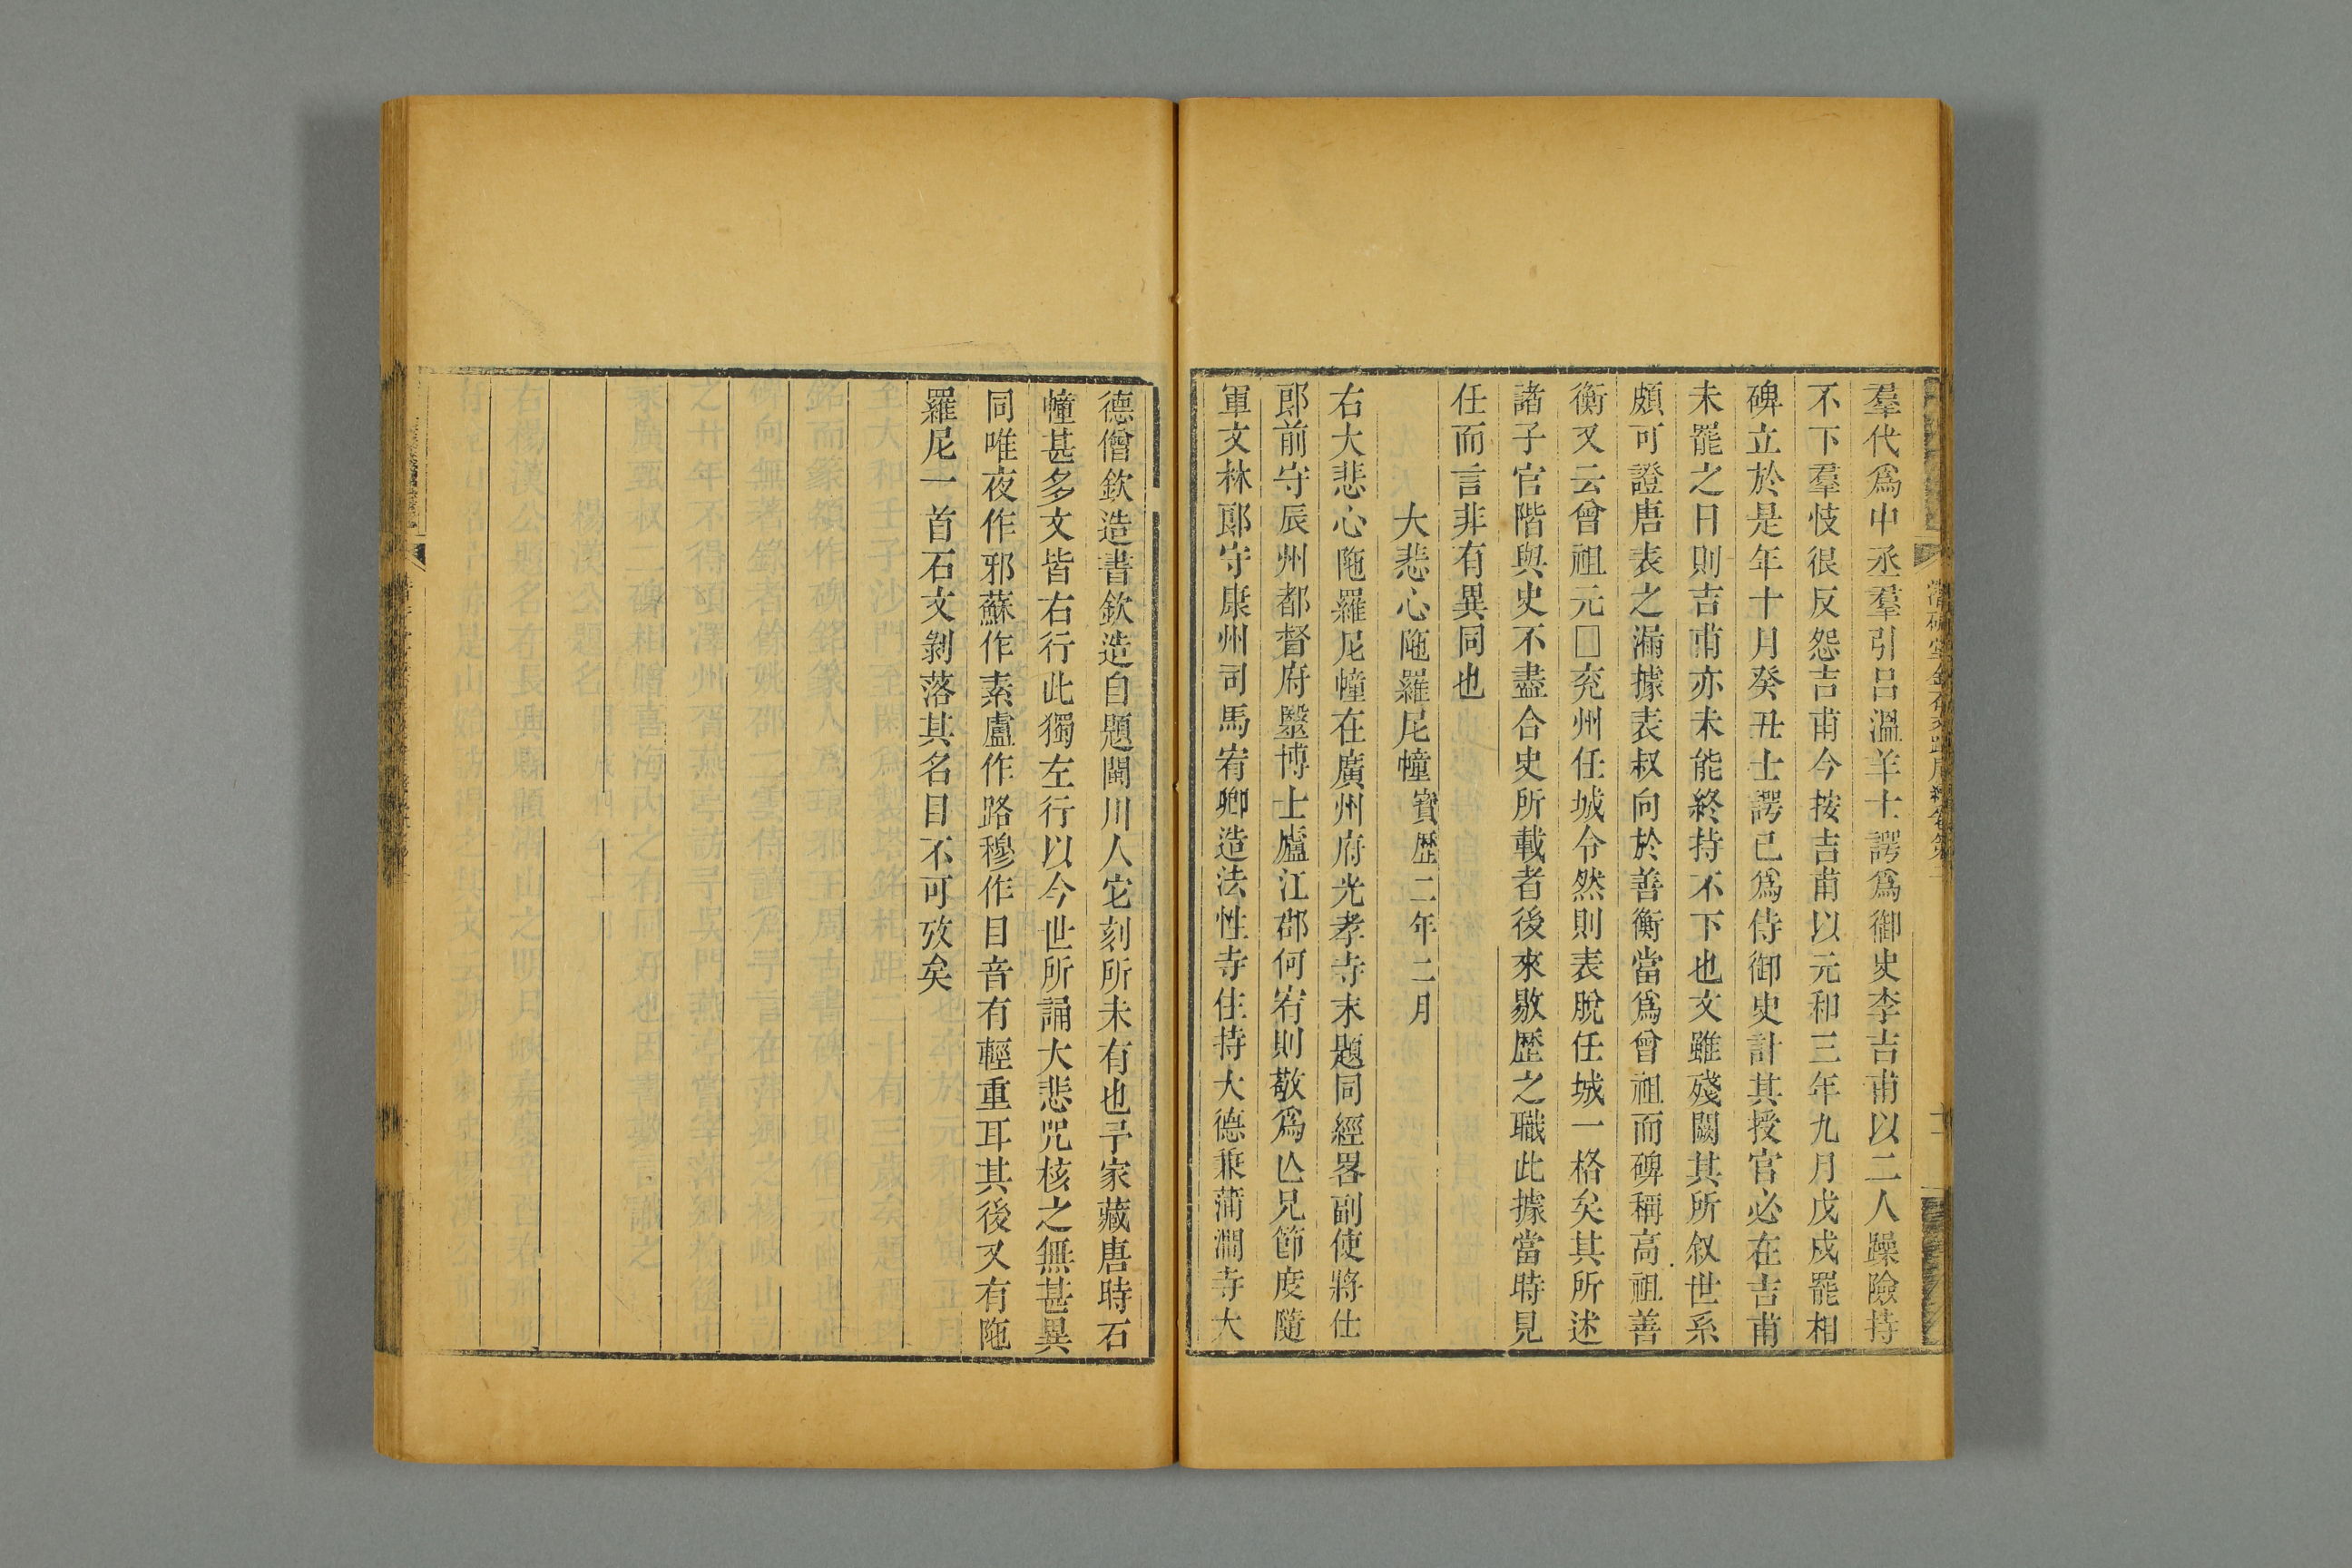 羣代爲中丞羣引呂溫羊士諤爲御史李吉甫以二人躁險持
不下羣忮很反怨吉甫今按吉甫以元和三年九月戊戌罷相
碑立於是年十月癸丑士諤已爲侍御史計其授官必在吉甫
未罷之日則吉甫亦未能終持不下也文雖殘闕其所叙世系
頗可證唐表之漏據表叔向於善衡當爲曾祖而碑稱高祖善
衡又云曾祖元□兖州任城令然則表脫任城一格矣其所述
諸子官階與史不盡合史所載者後來敭歷之職此據當時見
任而言非有異同也
大悲心陁羅尼幢寶歷二年二月
右大悲心陁羅尼幢在廣州府光孝寺末題同經畧副使將仕
郎前守辰州都督府毉博士廬江郡何宥則敬爲亾兄節度隨
軍文林郎守康州司馬宥卿造法性寺住持大德兼蒲澗寺大
德僧欽造書欽造自題閩川人它刻所未有也予家藏唐時石
幢甚多文皆右行此獨左行以今世所誦大悲咒核之無甚異
同唯夜作邪蘇作素盧作路穆作目音有輕重耳其後又有陁
羅尼一首石文剝落其名目不可攷矣